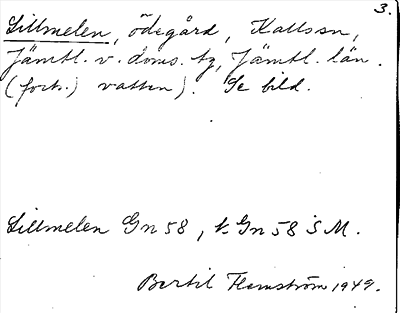 3.
Lillmelen, ödegård, Kallssn,
Jämtl. v. doms. tg, Jämtl. län.
(forts.) vatten). Se bild.
Lillmelen Gn 58, k Gn 58 S M.
Bertil Flemström 1949.